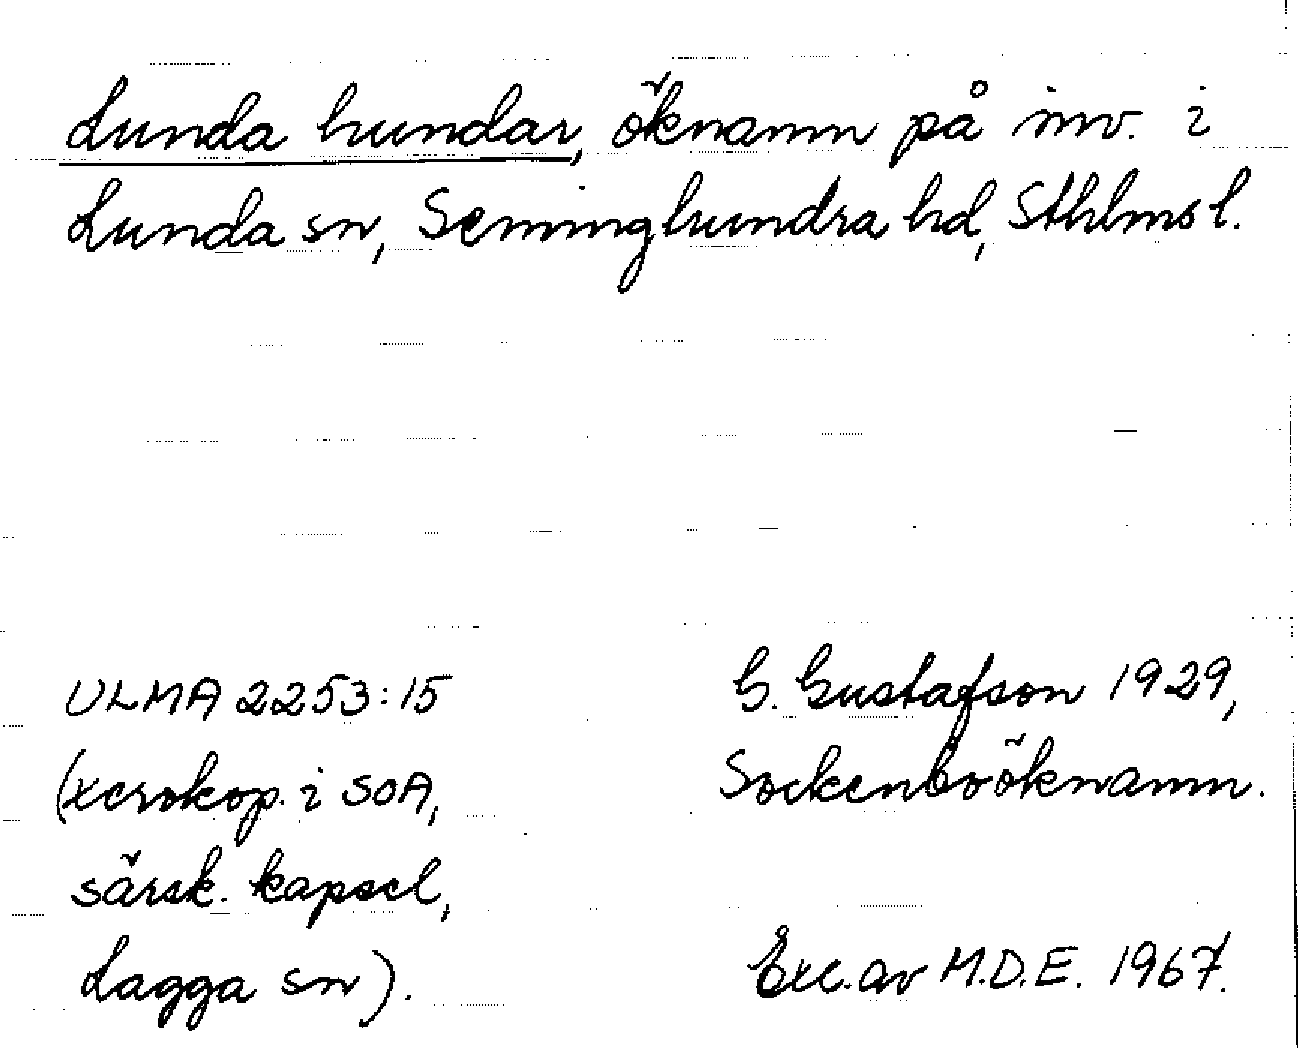 Lunda hundar, öknamn på inv. i
Lunda sn, Seminghundra hd, Sthlms l.
ULMA 2253:15
(xerokop. i SOA,
särsk. kapsel,
Lagga sn).
G. Gustafson 1929,
Sockenboöknamn.
Exc. av M.D.E. 1967.